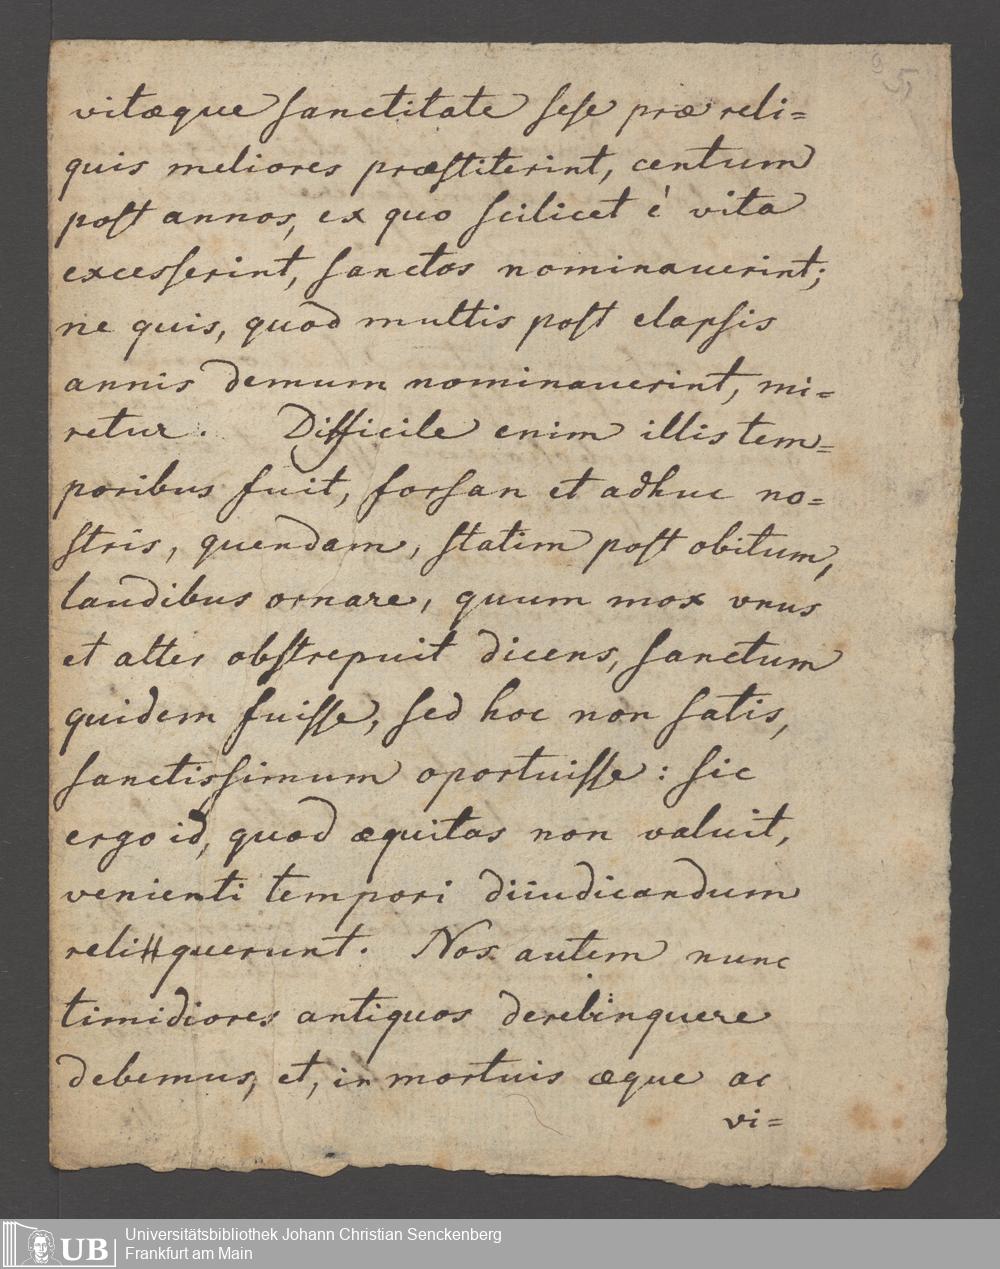 5
vitæque sanctitate sese præ reli=
quis meliores præstiterint, centum
post annos, ex quo scilicet è vita
excesserint, sanctos nominauerint;
ne quis, quod multis post elapsis
annis demum nominauerint, mi=
retur. Difficile enim illis tem=
poribus fuit, forsan et adhuc no=
stris, quendam, statim post obitum,
laudibus ornare, quum mox vnus
et alter obstrepuit dicens, sanctum
quidem fuisse, sed hoc non satis,
sanctissimum oportuisse: sic
ergo id, quod æquitas non valuit,
venienti tempori diiudicandum
reliquerunt. Nos autem nunc
timidiores antiquos derelinquere
debemus, et, in mortuis æque ac
vi=
UB
Universitätsbibliothek Johann Christian Senckenberg
Frankfurt am Main